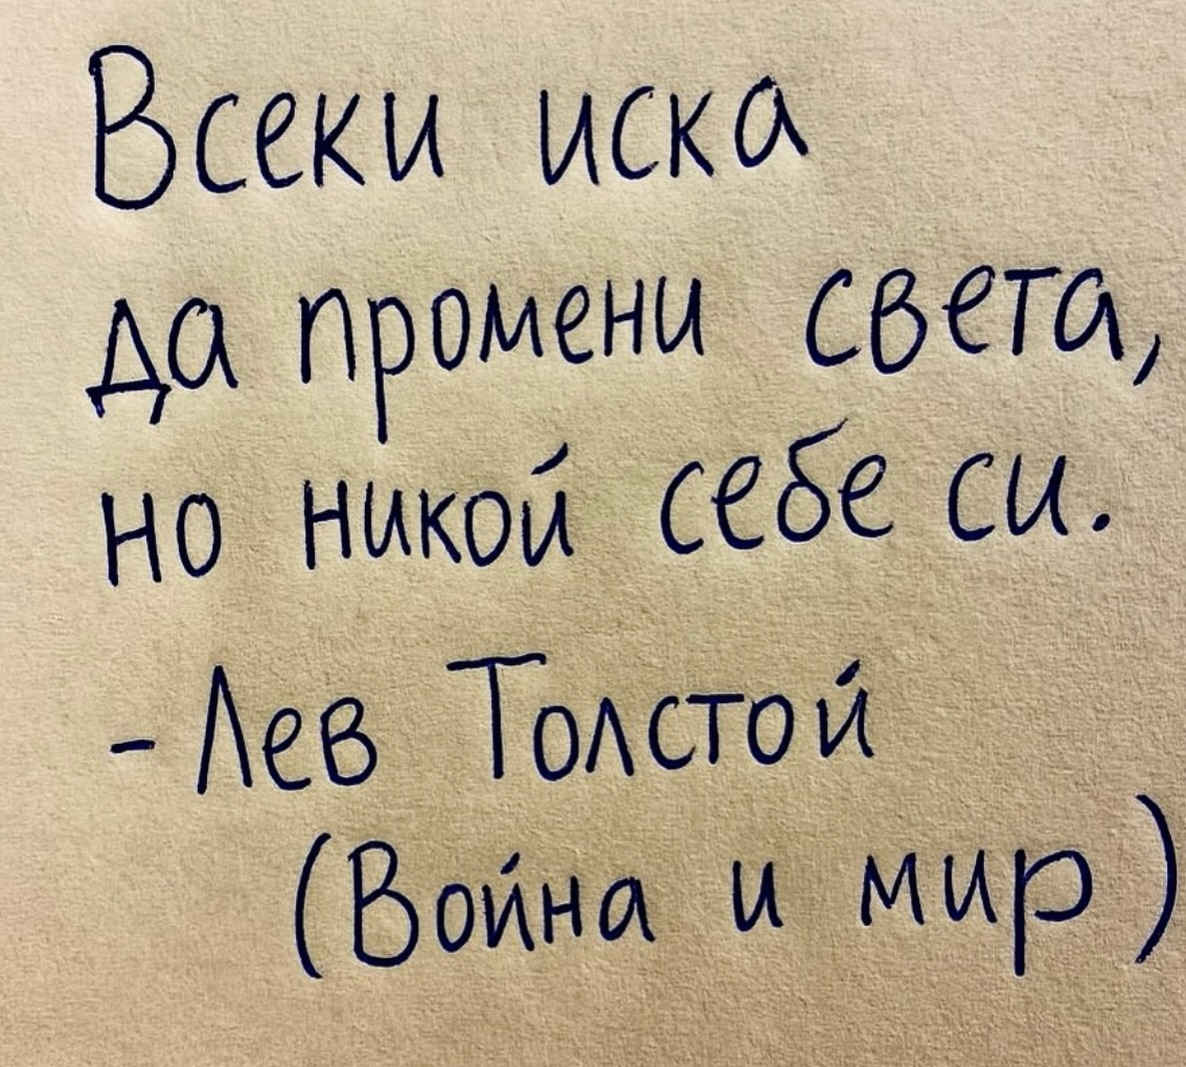 Всеки иска
да промени света,
но никой себе си.
- Лев Толстой
(Война и мир)